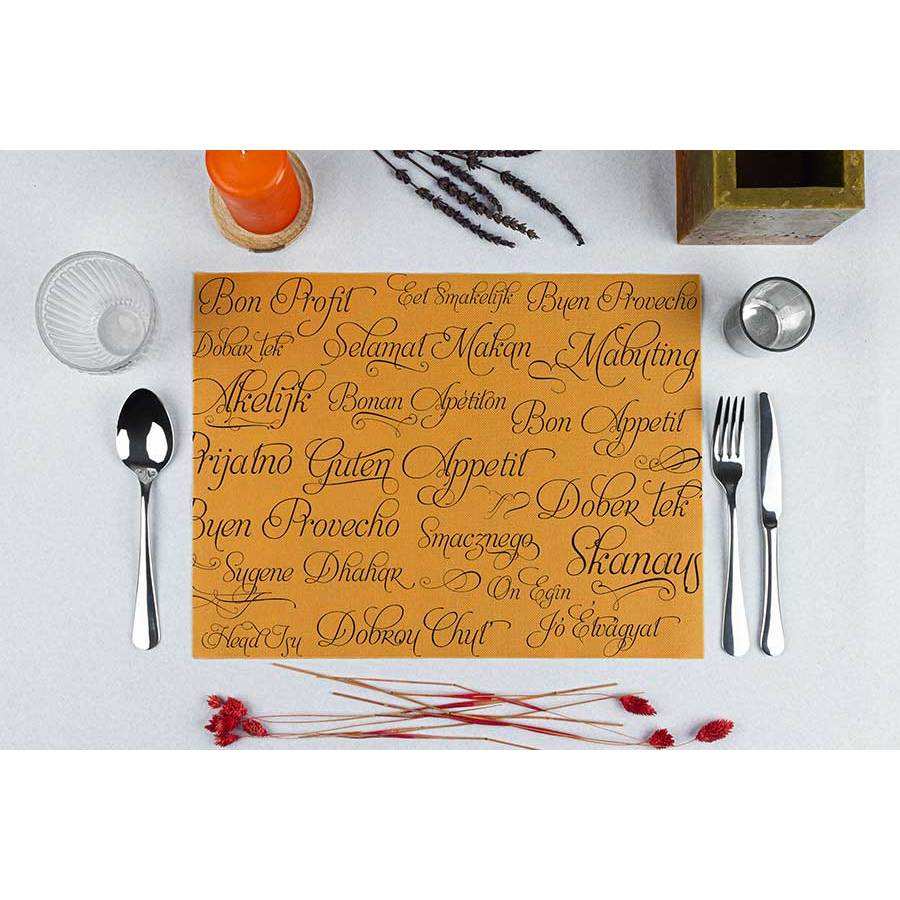 Bon Profit Eet Smakelijk Buen Provecho
Dobar tek Selamat Makan Mabuting
Akelijk Bonan Apétiton Bon Appetit
Prijatno Guten Appetit
Buen Provecho Smacznego Dober tek
Sygene Dhahar On Egin Skanaus
Hegd Isu Dobrou Chuť Jó Étvágyat